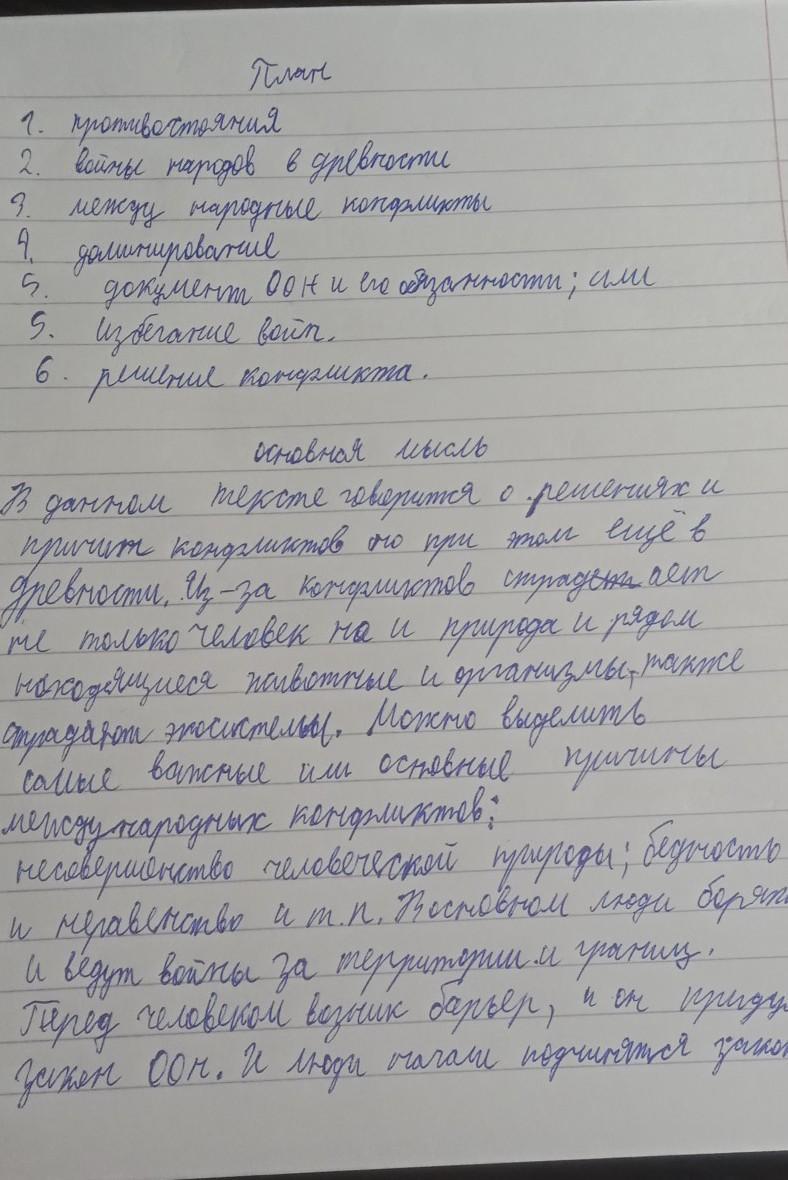 План
1. противостояния
2. войны народов в древности
3. между народные конфликты
4. доминирование
5. документ ООН и его обязанности; или
5. избегание войн.
6. решение конфликта.
основная мысль
В данном тексте говорится о решениях и
причин конфликтов но при этом ещё в
древности. Из-за конфликтов страдает
не только человек но и природа и рядом
находящиеся животные и организмы, также
страдают экосистемы. Можно выделить
самые важные или основные причины
международных конфликтов:
несовершенство человеческой природы; бедность
и неравенство и т.п. Восновном люди борят
и ведут войны за территории и границ.
Перед человеком возник барьер, и он приду
закон ООН. И люди начали подчинятся зако